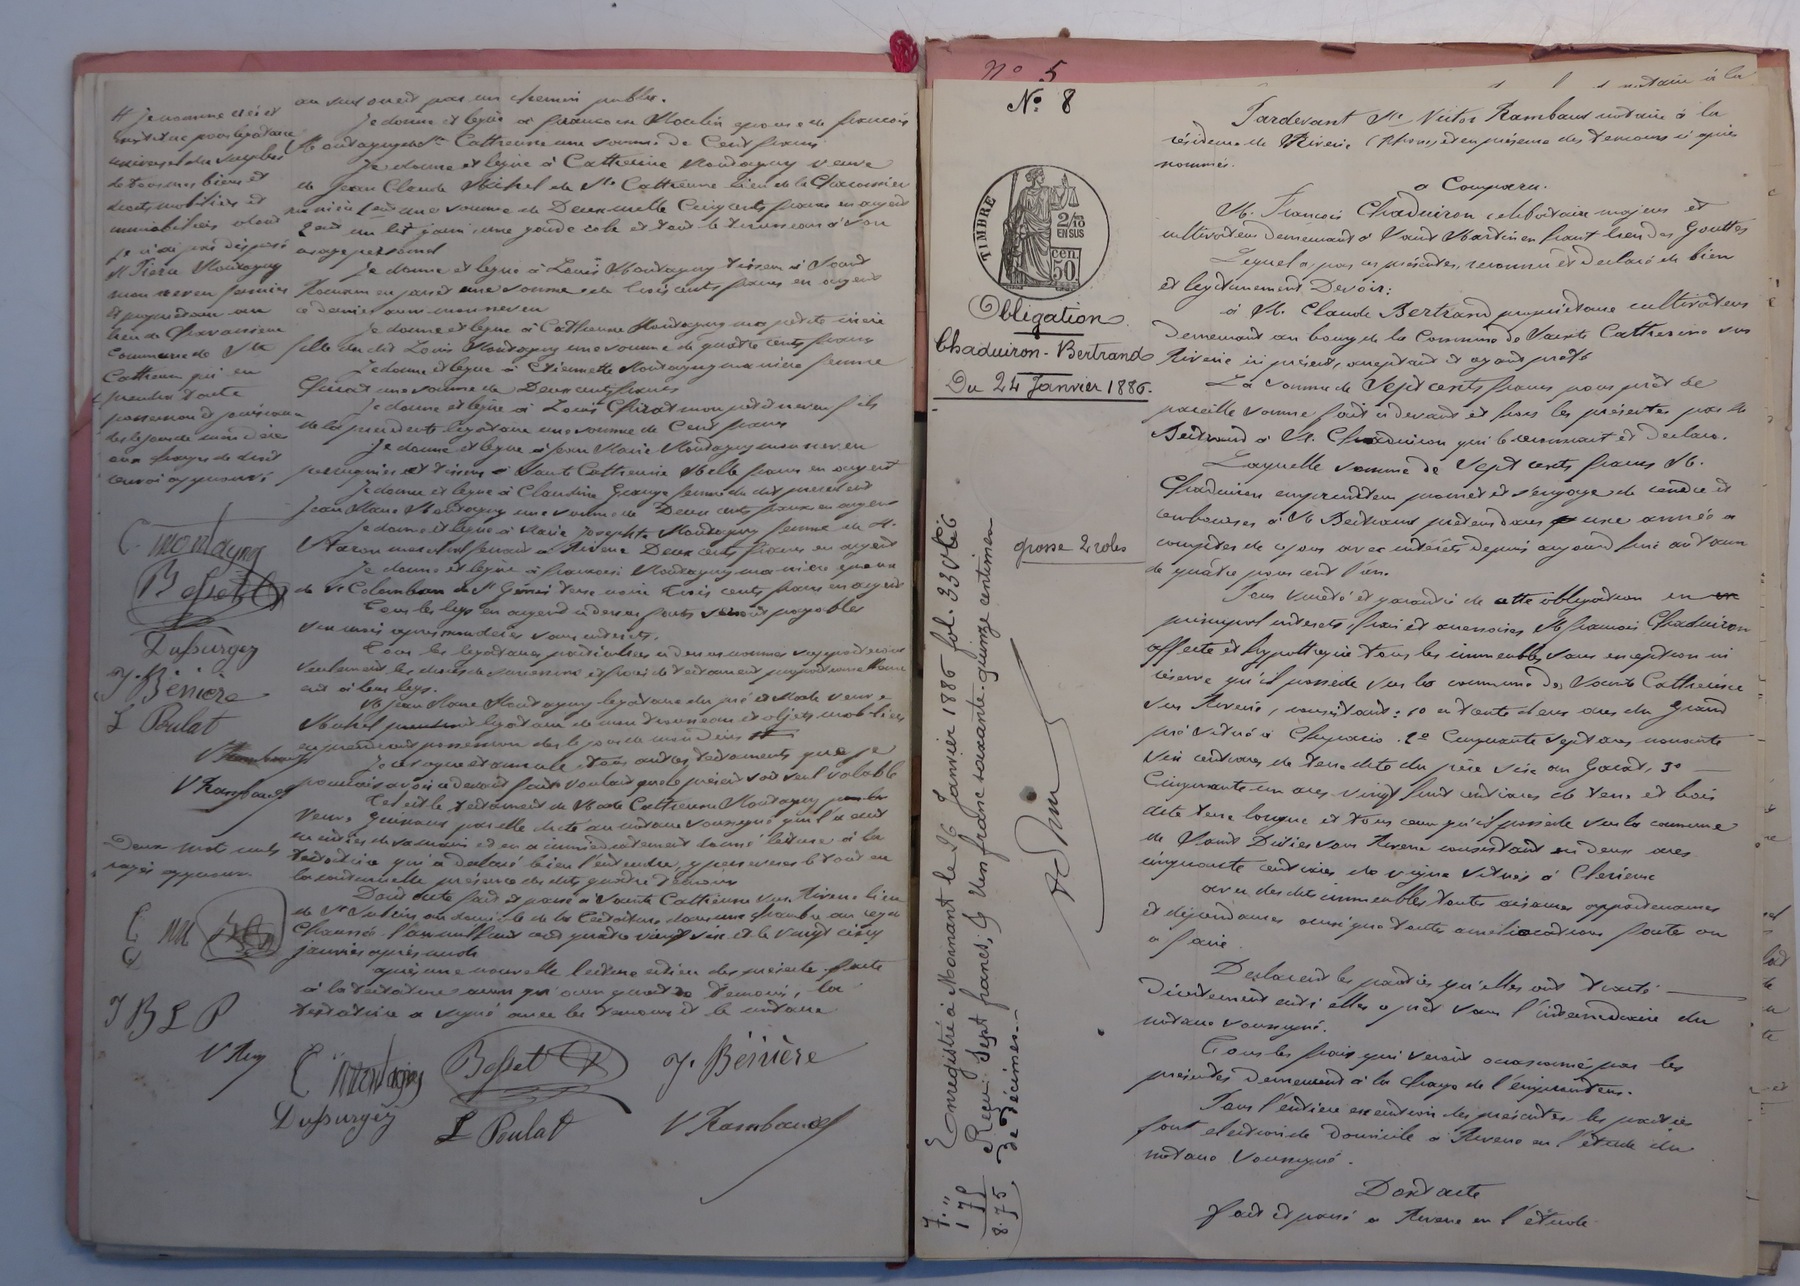 au sud ouest par un chemin public.
Je donne et lègue à françoise Moulin épouse de françois
Montagny de Ste Catherine une somme de Cent francs
Je donne et lègue à Catherine Montagny veuve
de Jean Claude Michel de Ste Catherine lieu de la
ma nièce une somme de Deux mille Cinq cents francs en argent
un lit garni une garde robe et tout le trousseau à son
usage personnel
Je donne et lègue à Louis Montagny tisseur à Saint
Romain en jarret une somme de trois cents francs en argent
ce dernier aussi mon neveu
Je donne et lègue à Catherine Montagny ma petite nièce
fille du dit Louis Montagny une somme de quatre cents francs
Je donne et lègue à Etiennette Montagny ma nièce femme
Chirat une somme de Deux cents francs
Je donne et lègue à Louis Chirat mon petit neveu fils
de la précédente légataire une somme de Cent francs
Je donne et lègue à Jean Marie Montagny mon neveu
et tisseur à Sainte Catherine Mille francs en argent
Je donne et lègue à Claudine Grange femme du dit précédent
Jean Marie Montagny une somme de Deux cents francs en argent
Je donne et lègue à Marie Josephte Montagny femme de M.
à Riverie Deux cents francs en argent
Je donne et lègue à françoise Montagny ma nièce
de St Colomban de St Genis Terre noire Trois cents francs en argent
Tous les legs en argent ci dessus faits seront payables
six mois après mon décès sans intérêts.
Tous les légataires particuliers ci dessus nommés
seulement les droits de succession et frais de testament
à leur legs.
M. Jean Marie Montagny légataire du pré et Made veuve
Michel légataire de mon trousseau et objets mobiliers
en prendront possession dès le jour de mon décès #
Je révoque et annule tous autres testaments que je
pourrais avoir ci devant faits voulant que le présent soit seul valable
Tel est le testament de Made Catherine Montagny
veuve par elle dicté au notaire soussigné qui l'a écrit
en entier de sa main et en a immédiatement donné lecture à la
testatrice qui a déclaré bien l'entendre, y persévérer le tout en
la présence des dits quatre témoins
Dont acte fait et passé à Sainte Catherine sur Riverie lieu
de au domicile de la testatrice dans une chambre au rez de
Chaussée l'an mil huit cent quatre vingt six et le vingt cinq
janvier après midi
après une nouvelle lecture entière des présentes faite
à la testatrice ainsi qu'aux quatre témoins, la
testatrice a signé avec les témoins et le notaire
C montagny
Besset
J. Bénière
Dussurgey
L Poulat
V Rambaud
# je nomme et
institue pour légataire
universel du surplus
de tous mes biens et
droits mobiliers et
immobiliers dont
je n'ai pas disposé
M Pierre Montagny
mon neveu fermier
et propriétaire au
lieu de Chavassieux
Commune de Ste
Catherine qui en
prendra toute
possession et jouissance
dès le jour de mon décès
aux charges de droit
renvoi approuvé
C. montagny
Besset
Dussurgey
J. Bénière
L Poulat
V Rambaud
V Rambaud
Deux mots nuls
rayés approuvé.
J B L P
V Ray
No 5
notaire à la
No. 8
TIMBRE
2/10
EN SUS
cen.
50
Obligation
Chaduiron - Bertrand
Du 24 Janvier 1886.
grosse 2 roles
Enregistré à Mornant le 26 Janvier 1886 fol. 33
Reçu: Sept francs, & Un franc soixante-quinze centimes
de décimes.
7. "
1 75
8.75
Pardevant Me Victor Rambaud notaire à la
résidence de Riverie (Rhône) et en présence des témoins ci après
nommés.
a Comparu.
M. François Chaduiron célibataire majeur et
cultivateur demeurant à Saint Martin en haut lieu des Gouttes
Lequel a, par ces présentes, reconnu et déclaré de bien
et légitimement Devoir:
à M. Claude Bertrand propriétaire cultivateur
demeurant au bourg de la Commune de Sainte Catherine sur
Riverie ici présent, acceptant et ayant prêté
La somme de Sept cents francs pour prêt de
pareille somme fait ci devant et hors les présentes par M
Bertrand à M. Chaduiron qui le reconnait et déclare.
Laquelle somme de Sept cents francs M.
Chaduiron emprunteur promet et s'engage de rendre et
rembourser à M Bertrand prêteur dans une année à
compter de ce jour avec intérêts depuis aujourd'hui au taux
de quatre pour cent l'an.
Pour sureté et garantie de cette obligation en
principal intérêts, frais et accessoires M françois Chaduiron
affecte et hypothèque tous les immeubles sans exception ni
réserve qu'il possède sur la commune de Sainte Catherine
sur Riverie, consistant: 1o en trente deux ares du Grand
pré situé à 2o Cinquante sept ares nonante
six centiares de terre dite du père sise au Garat, 3o
Cinquante un ares vingt huit centiares de terre et bois
dite terre longue et tous ceux qu'il possède sur la commune
de Saint Didier sous Riverie consistant en deux ares
cinquante centiares de vigne située à
avec des dits immeubles toutes aisances appartenances
et dépendances ainsi que toutes améliorations faites ou
à faire.
Declarent les parties qu'elles ont traité
Directement entre elles ce prêt sans l'intermédiaire du
notaire soussigné.
Tous les frais qui seront occasionnés par les
présentes demeurent à la charge de l'emprunteur.
Pour l'entière exécution des présentes les parties
font élection de domicile à Riverie en l'étude du
notaire soussigné.
Dont acte
fait et passé à Riverie en l'étude